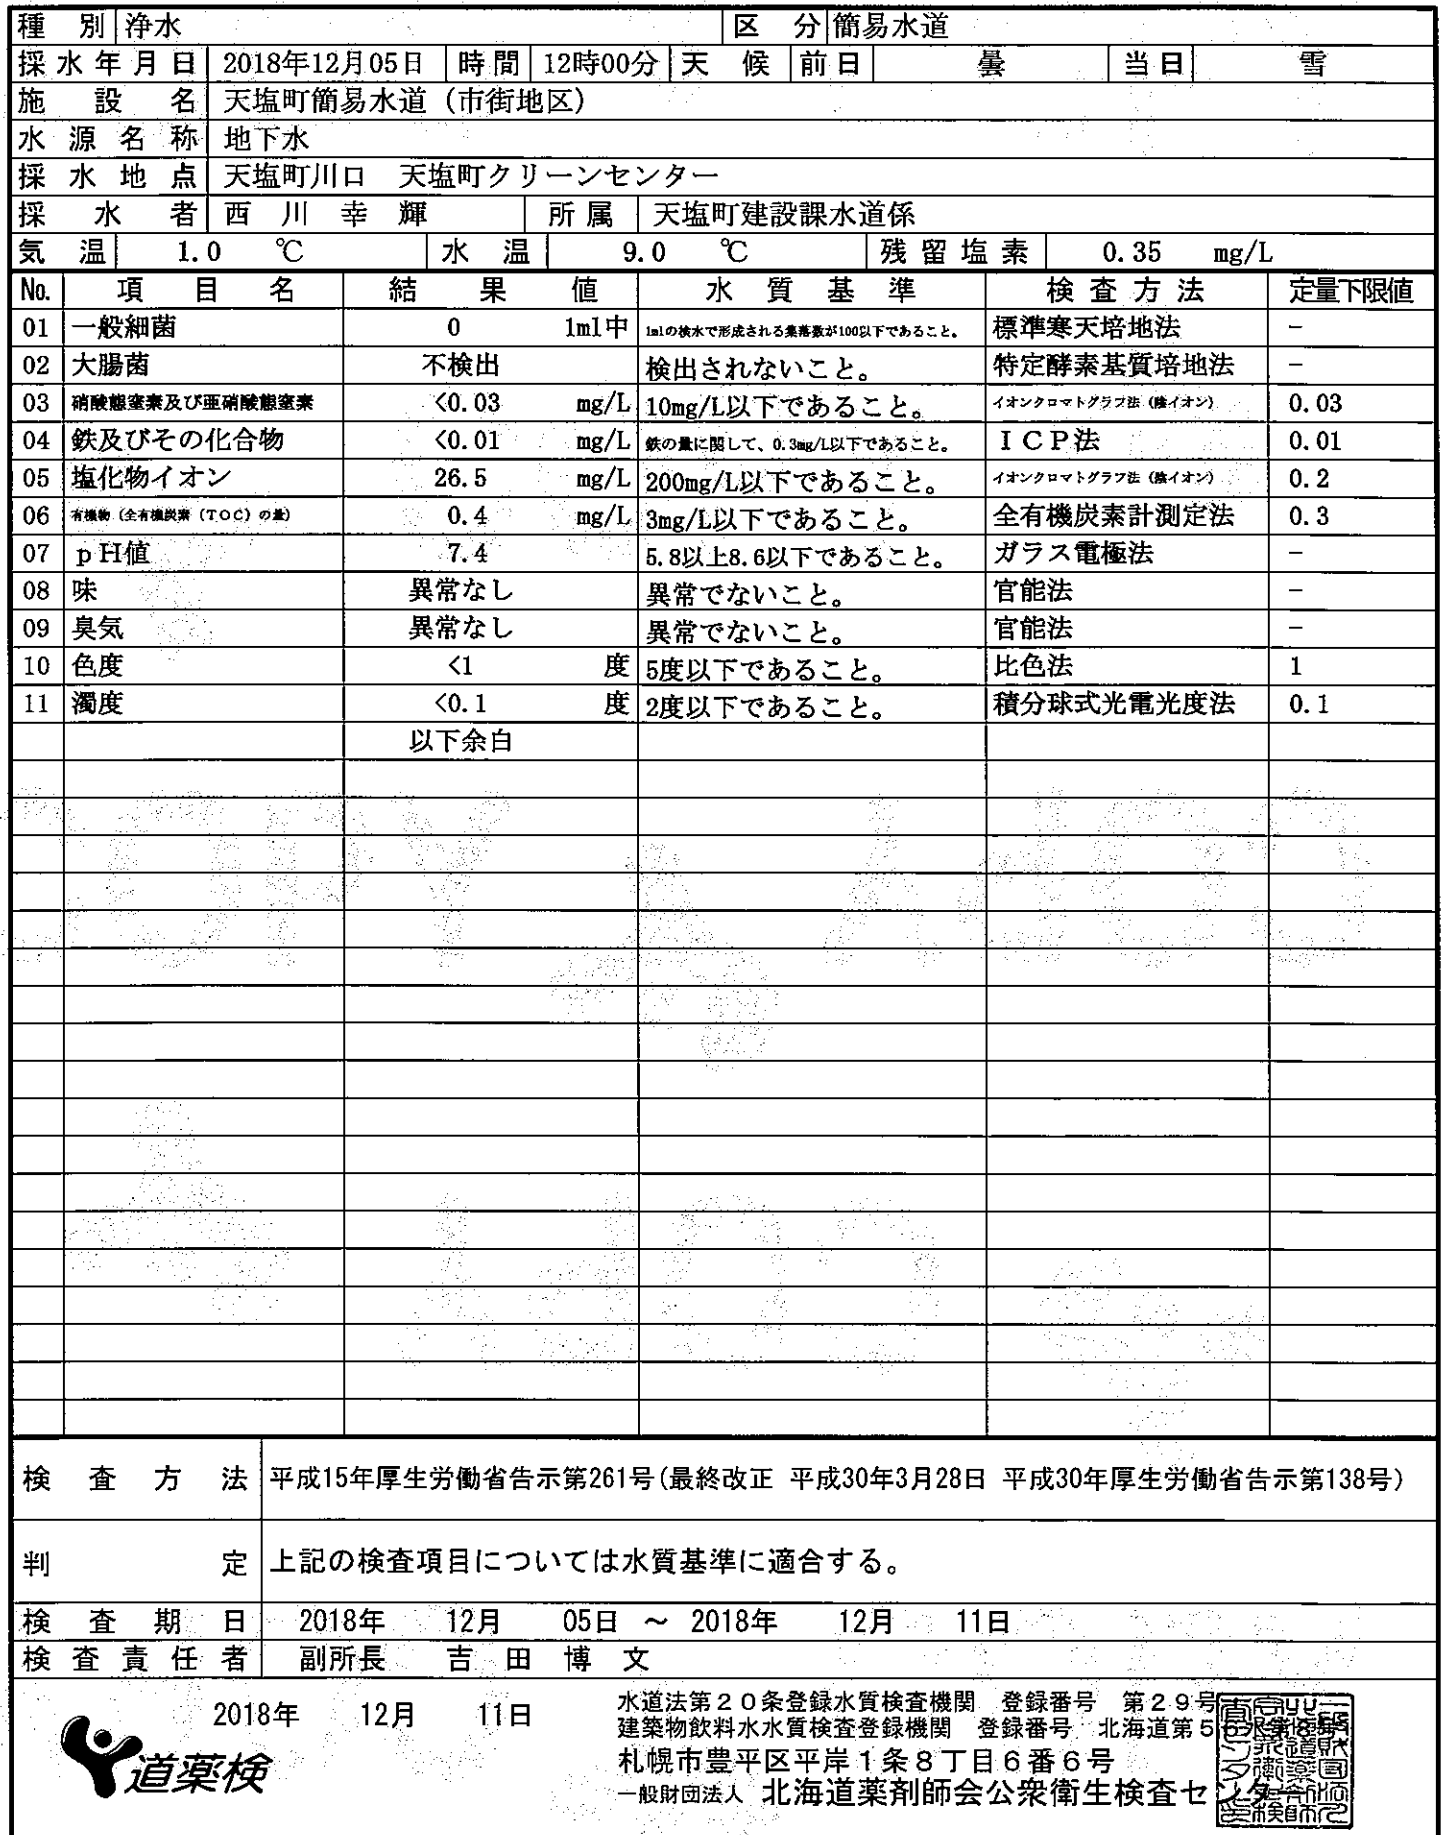 種別 浄水 区分 簡易水道
採水年月日 2018年12月05日 時間 12時00分 天候 前日 曇 当日 雪
施設名 天塩町簡易水道（市街地区）
水源名称 地下水
採水地点 天塩町川口　天塩町クリーンセンター
採水者 西川幸輝 所属 天塩町建設課水道係
気温 1.0 ℃ 水温 9.0 ℃ 残留塩素 0.35 mg/L
No. 項目名 結果値 水質基準 検査方法 定量下限値
01 一般細菌 0 1ml中 1mlの検水で形成される集落数が100以下であること。 標準寒天培地法 －
02 大腸菌 不検出 検出されないこと。 特定酵素基質培地法 －
03 硝酸態窒素及び亜硝酸態窒素 <0.03 mg/L 10mg/L以下であること。 イオンクロマトグラフ法（陰イオン） 0.03
04 鉄及びその化合物 <0.01 mg/L 鉄の量に関して、0.3mg/L以下であること。 ＩＣＰ法 0.01
05 塩化物イオン 26.5 mg/L 200mg/L以下であること。 イオンクロマトグラフ法（陰イオン） 0.2
06 有機物（全有機炭素（TOC）の量） 0.4 mg/L 3mg/L以下であること。 全有機炭素計測定法 0.3
07 ｐＨ値 7.4 5.8以上8.6以下であること。 ガラス電極法 －
08 味 異常なし 異常でないこと。 官能法 －
09 臭気 異常なし 異常でないこと。 官能法 －
10 色度 <1 度 5度以下であること。 比色法 1
11 濁度 <0.1 度 2度以下であること。 積分球式光電光度法 0.1
以下余白
検査方法 平成15年厚生労働省告示第261号(最終改正 平成30年3月28日 平成30年厚生労働省告示第138号)
判定 上記の検査項目については水質基準に適合する。
検査期日 2018年 12月 05日 ～ 2018年 12月 11日
検査責任者 副所長 吉田博文
2018年 12月 11日
道薬検
水道法第２０条登録水質検査機関　登録番号　第２９号
建築物飲料水水質検査登録機関　登録番号　北海道第５
札幌市豊平区平岸１条８丁目６番６号
一般財団法人 北海道薬剤師会公衆衛生検査センター